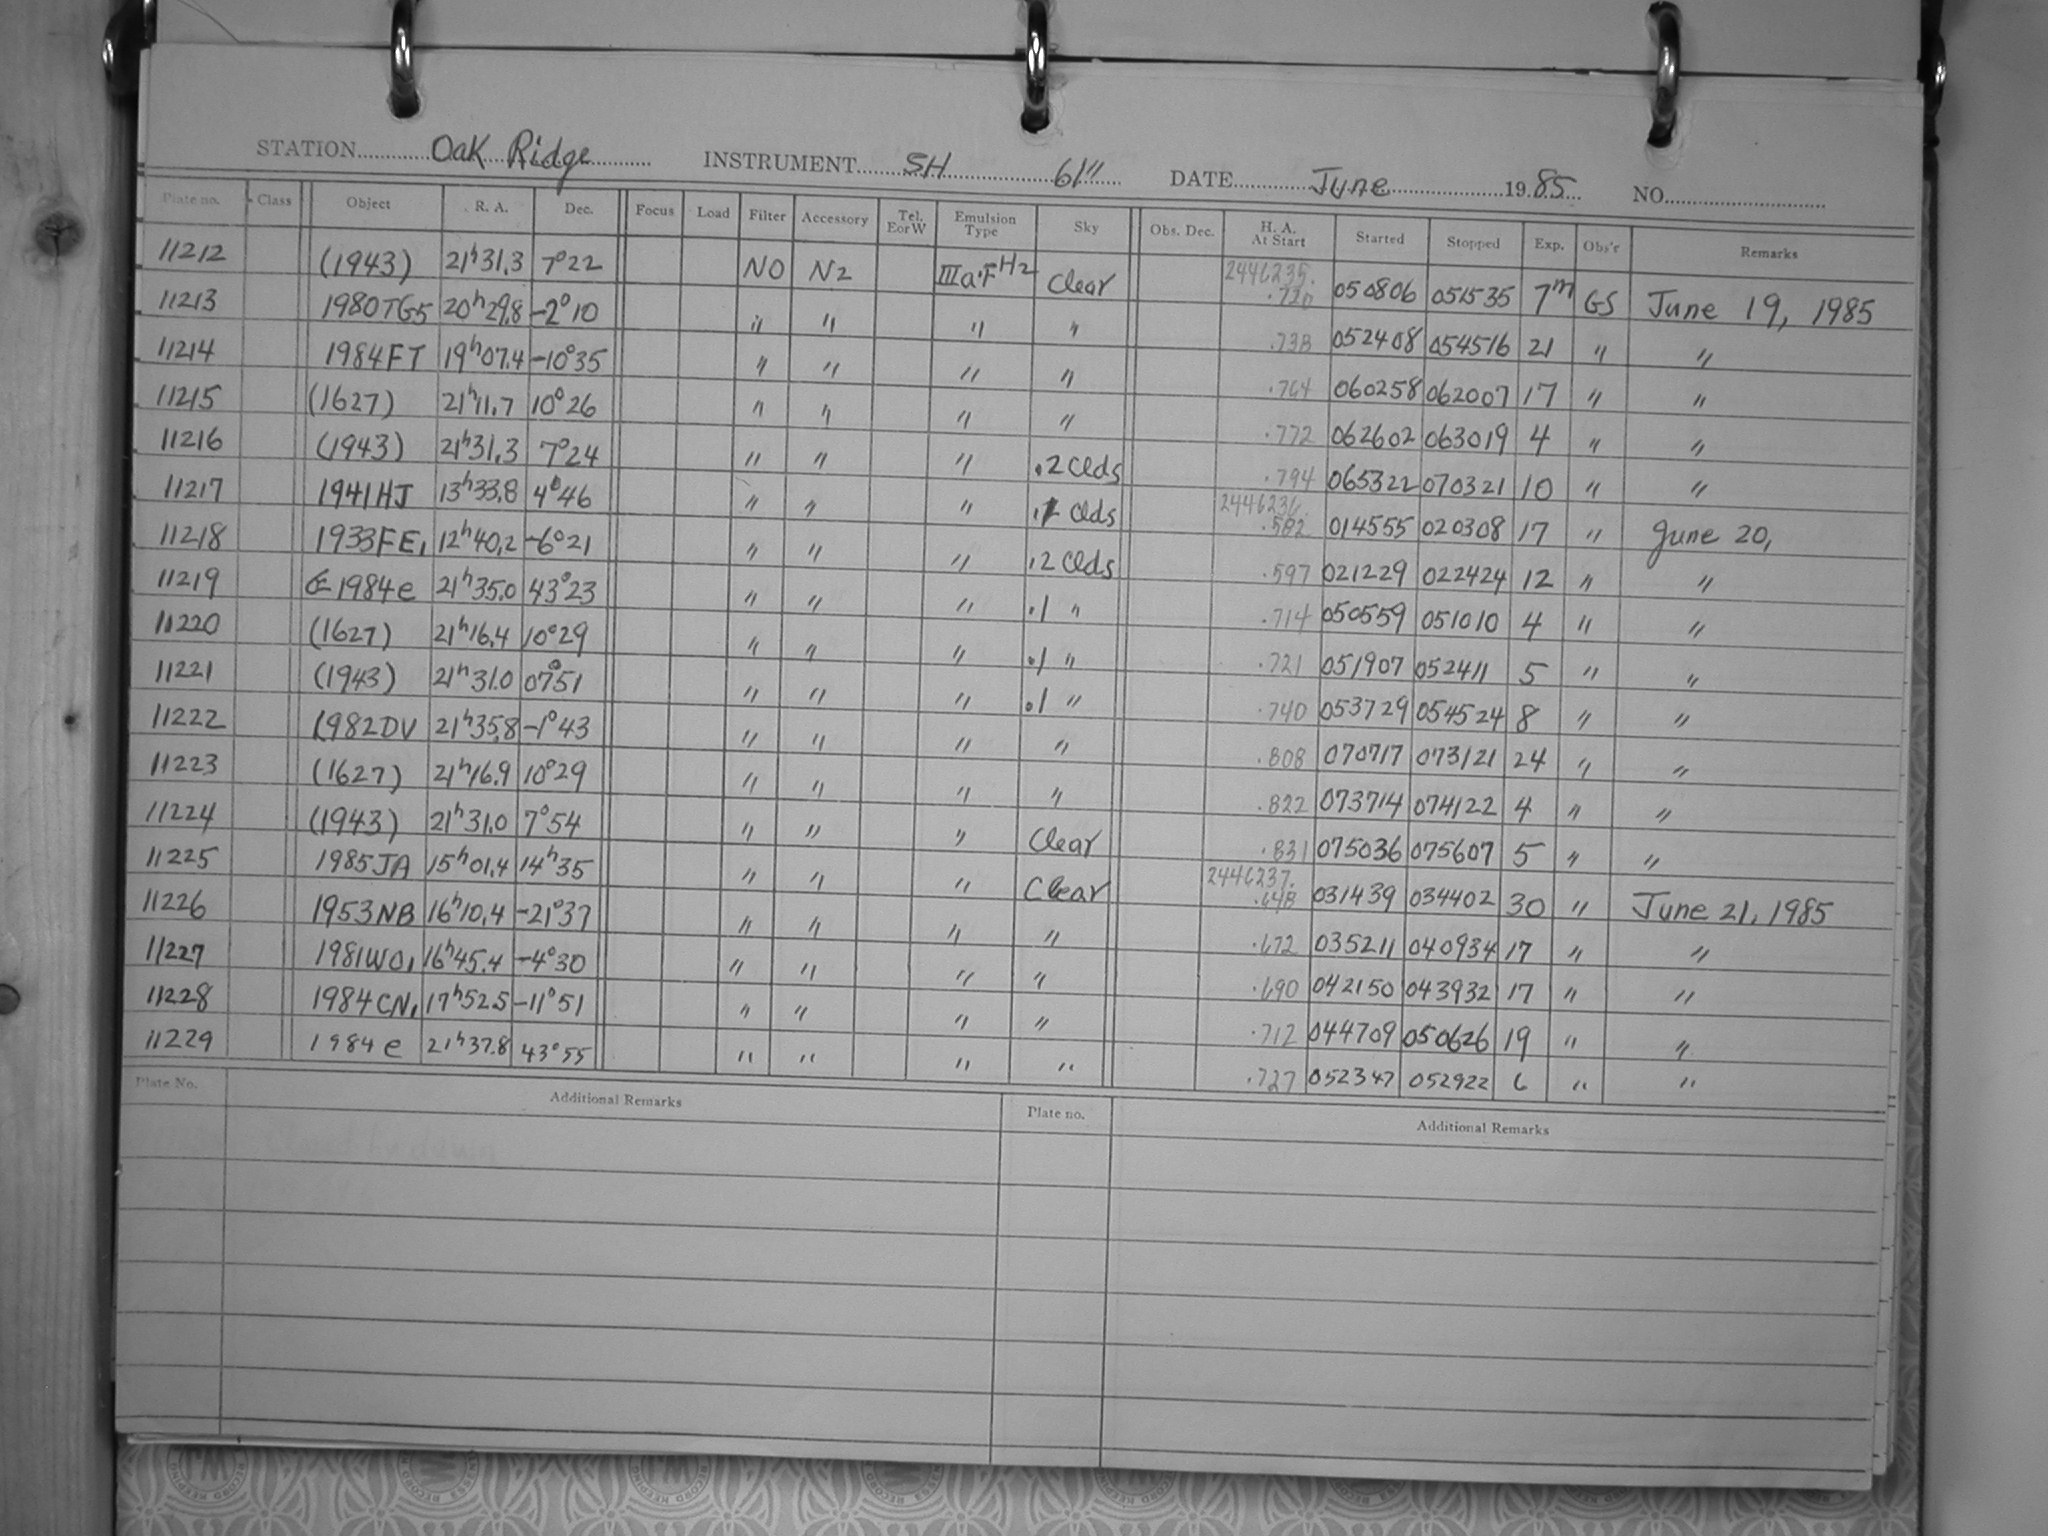 STATION Oak Ridge INSTRUMENT SH 61" DATE June 1985 NO.
Plate no. Class Object R. A. Dec. Focus Load Filter Accessory Tel. E or W Emulsion Type Sky Obs. Dec. H. A. At Start Started Stopped Exp. Obs'r Remarks
11212 (1943) 21h31.3 7°22 NO N2 IIIa-F H2 Clear 2446235. 050806 051535 7m GS June 19, 1985
11213 1980TG5 20h29.8 -2°10 " " " " .738 052408 054516 21 " "
11214 1984FT 19h07.4 -10°35 " " " " .764 060258 062007 17 " "
11215 (1627) 21h11.7 10°26 " " " " .772 062602 063019 4 " "
11216 (1943) 21h31.3 7°24 " " " .2 Clds .794 065322 070321 10 " "
11217 1941HJ 13h33.8 4°46 " " " Clds 2446236. .582 014555 020308 17 " June 20,
11218 1933FE1 12h40.2 -6°21 " " " .2 Clds .597 021229 022424 12 " "
11219 1984e 21h35.0 43°23 " " " .1 " .714 050559 051010 4 " "
11220 (1627) 21h16.4 10°29 " " " .1 " .721 051907 052411 5 " "
11221 (1943) 21h31.0 07°51 " " " .1 " .740 053729 054524 8 " "
11222 1982DV 21h35.8 -1°43 " " " " .808 070717 073121 24 " "
11223 (1627) 21h16.9 10°29 " " " " .822 073714 074122 4 " "
11224 (1943) 21h31.0 7°54 " " " Clear .831 075036 075607 5 " "
11225 1985JA 15h01.4 14h35 " " " Clear 2446237. .648 031439 034402 30 " June 21, 1985
11226 1953NB 16h10.4 -21°37 " " " " .672 035211 040934 17 " "
11227 1981WO1 16h45.4 -4°30 " " " " .690 042150 043932 17 " "
11228 1984CN1 17h52.5 -11°51 " " " " .712 044709 050626 19 " "
11229 1984e 21h37.8 43°55 " " " " .727 052347 052922 6 " "
Plate No. Additional Remarks Plate no. Additional Remarks